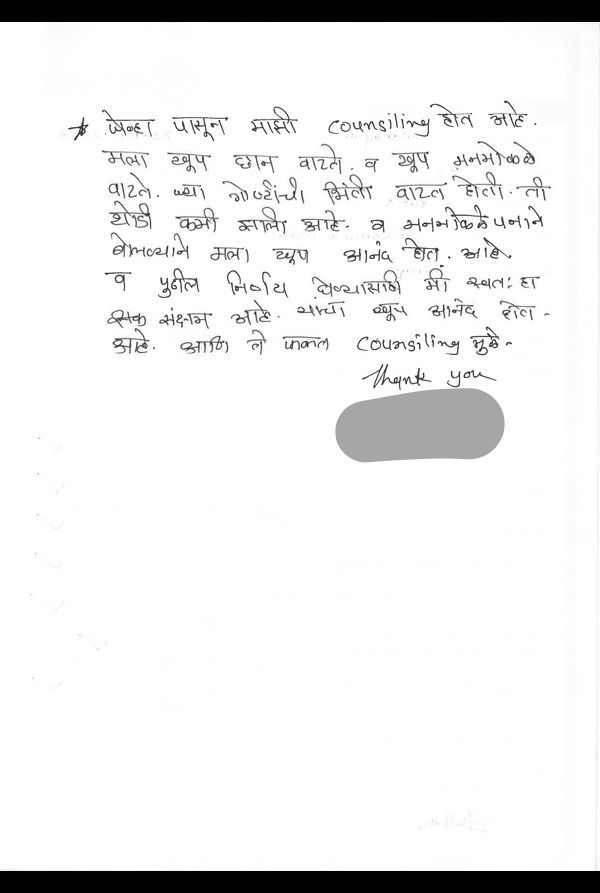 * जेव्हा पासून माझी counsiling होत आहे.
मला खूप छान वाटते. व खूप मनमोकळे
वाटते. ज्या गोष्टींची भिती वाटत होती. ती
थोडी कमी झाली आहे. व मनमोकळेपनाने
बोलल्याने मला खूप आनंद होत. आहे.
व पुढील निर्णय घेण्यासाठी मी स्वतः हा
सक्षम आहे. याचा खूप आनंद होत -
आहे. आणि ते फक्त counsiling मुळे -
Thank you